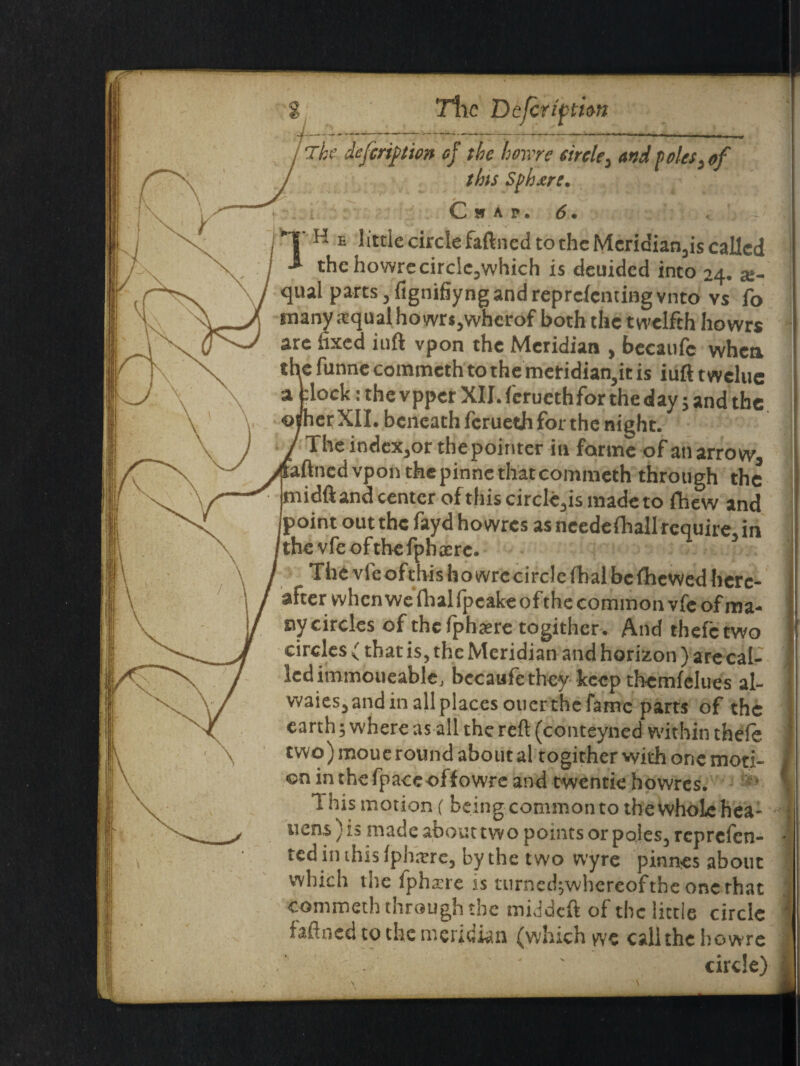 8 The Deſcription
The deſcription of the howre circle, and poles, of
this Sphære.
CHAP. 6.
THE little circle faſtned to the Meridian, is called
the howre circle, which is deuided into 24. æ-
qual parts, ſignifiyng and repreſenting vnto vs ſo
many æqual howrs, wherof both the twelfth howrs
are fixed iuſt vpon the Meridian , becauſe when
the ſunne commeth to the meridian, it is iuſt twelue
a clock : the vpper XII. ſerueth for the day ; and the
other XII. beneath ſerueth for the night.
The index, or the pointer in forme of an arrow,
faſtned vpon the pinne that commeth through the
midſt and center of this circle, is made to ſhew and
point out the ſayd howres as neede ſhall require, in
the vſe of the ſphære.
The vſe of this howre circle ſhal be ſhewed here-
after when we ſhal ſpeake of the common vſe of ma-
ny circles of the ſphære togither. And theſe two
circles ( that is, the Meridian and horizon ) are cal-
led immoueable, becauſe they keep themſelues al-
waies, and in all places ouer the ſame parts of the
earth ; where as all the reſt (conteyned within theſe
two) moue round about al togither with one moti-
on in the ſpace of fowre and twentie howres.
This motion ( being common to the whole hea-
uens ) is made about two points or poles, repreſen-
ted in this ſphære, by the two wyre pinnes about
which the ſphære is turned; whereof the one that
commeth through the middeſt of the little circle
faſtned to the meridian (which we call the howre
circle)